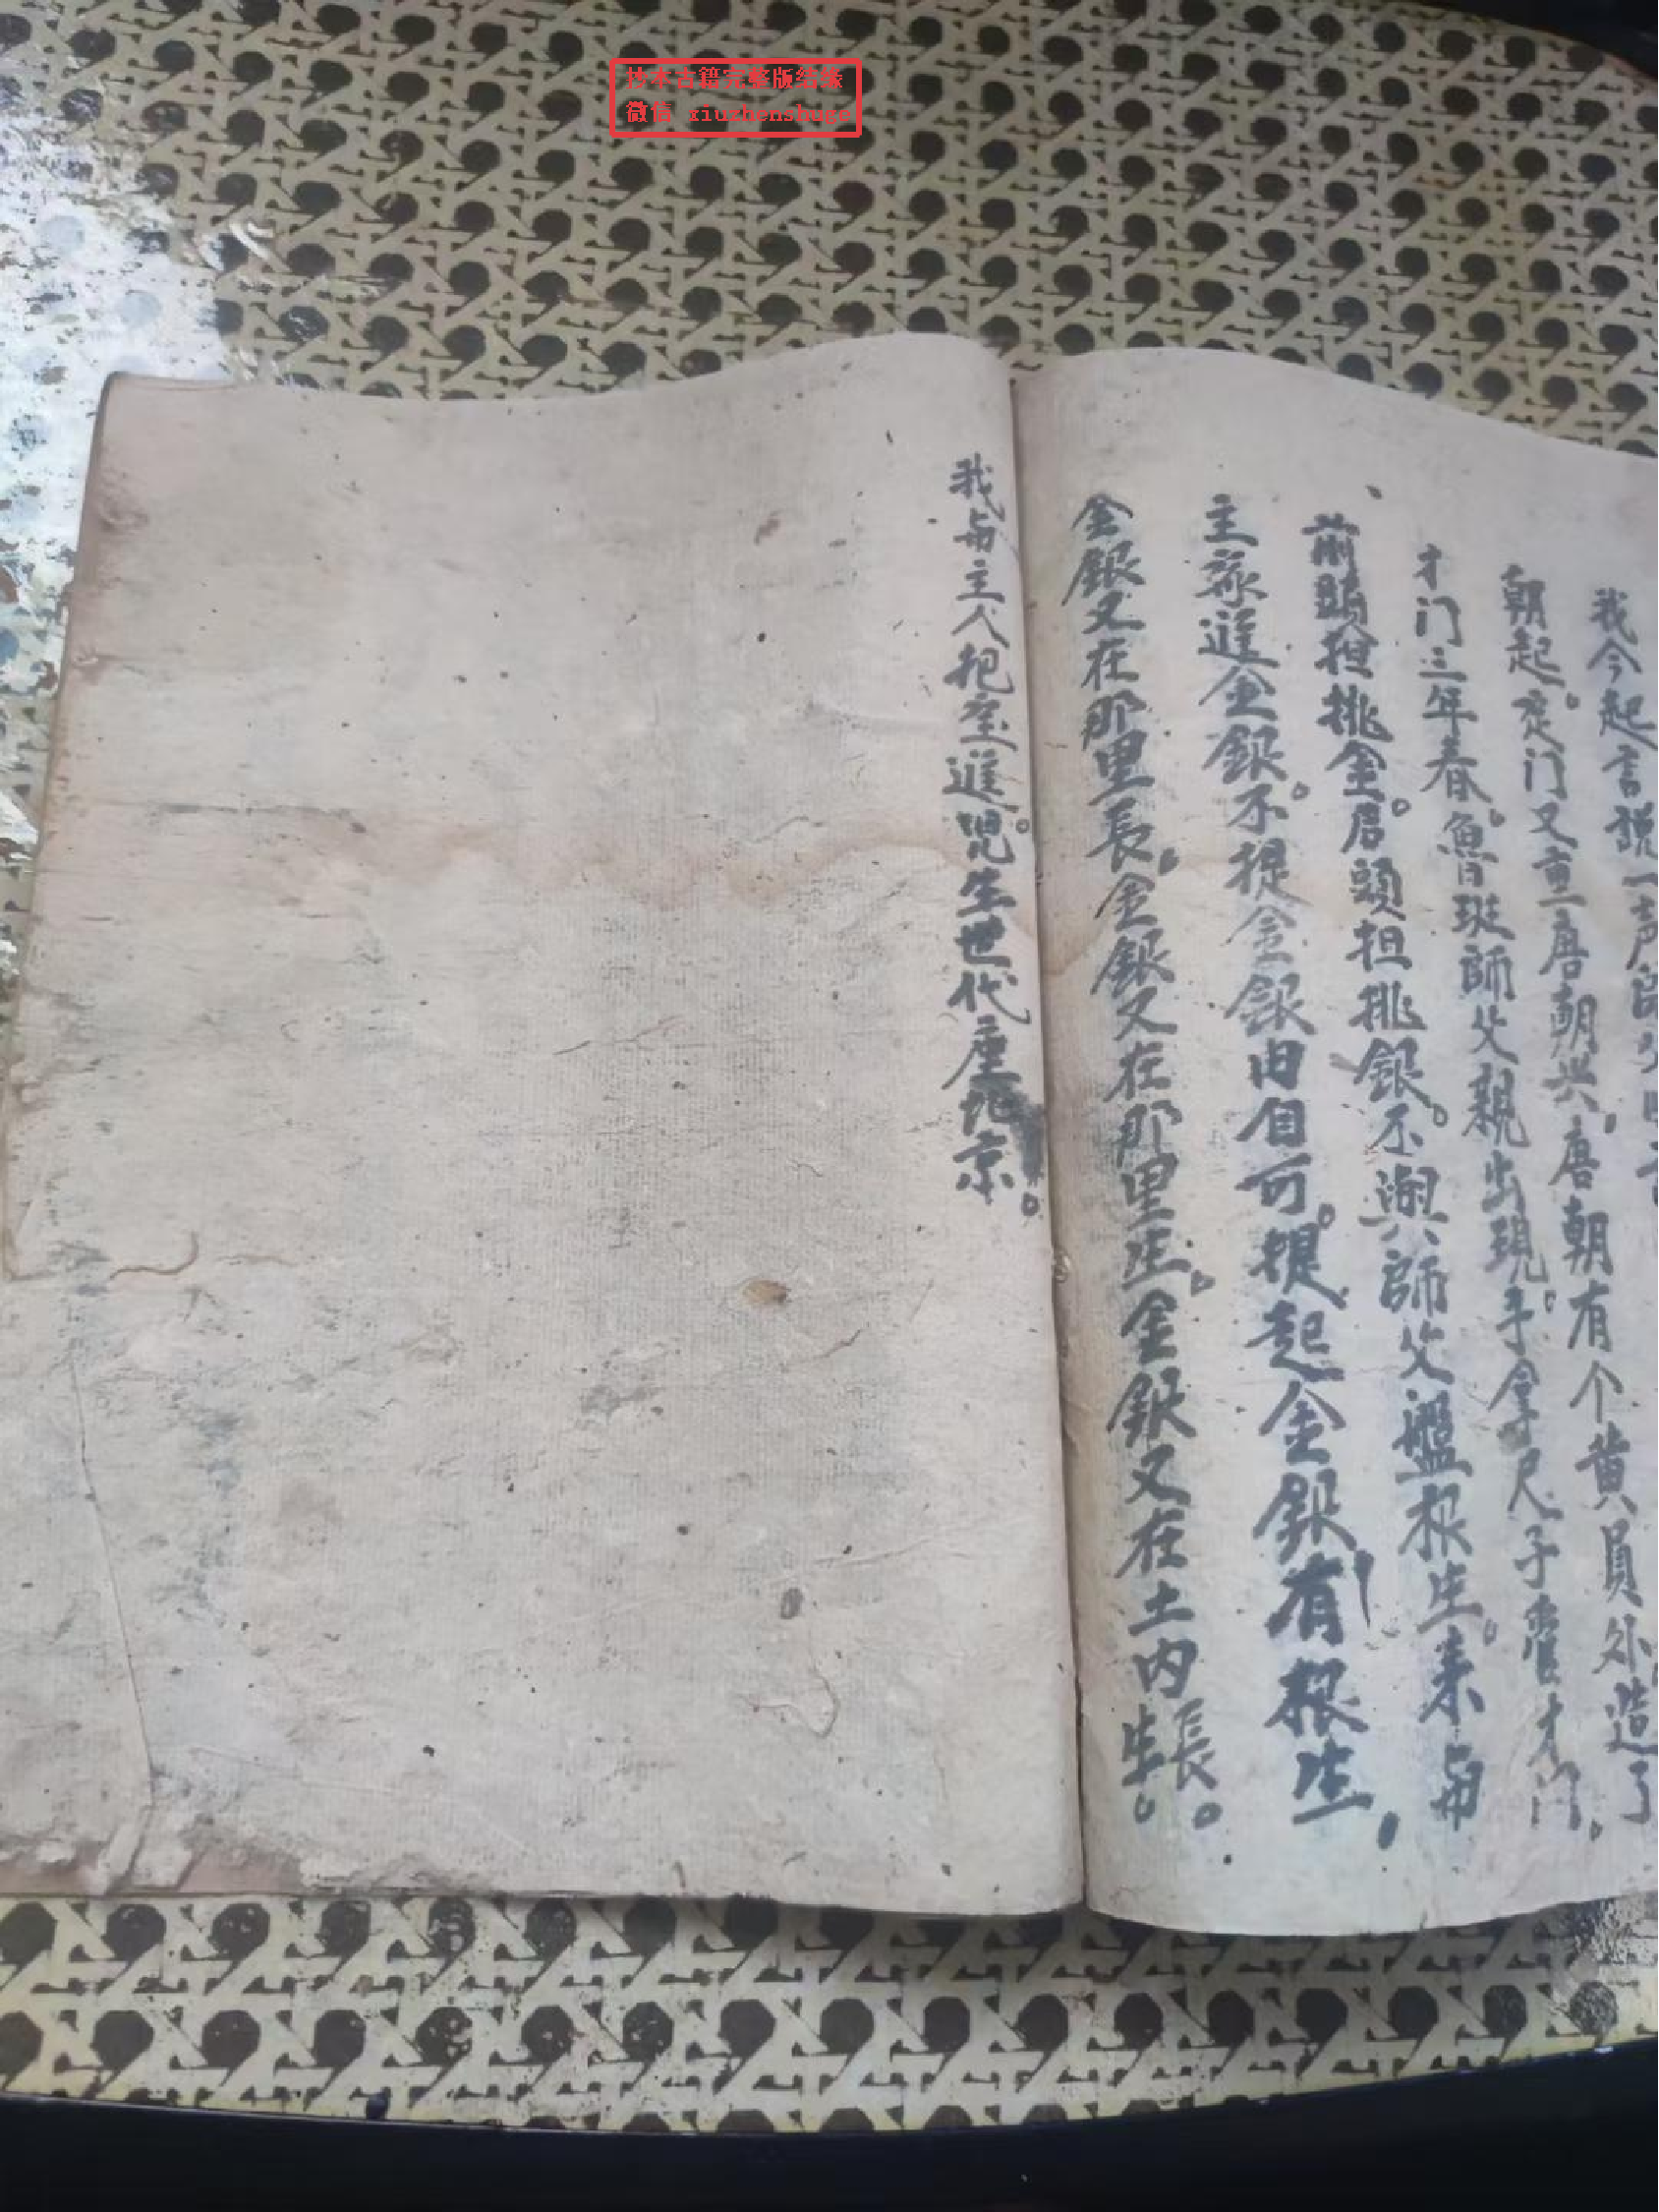 抄本古籍完整版结缘
微信 xiuzhenshuge
我今起言說一声師父
朝起。定门又重唐朝兴，唐朝有个黄員外。造了
才门三年春。魯班師父親出現。手拿尺子量才门。
前頭担挑金。后頭担挑銀。不與師父盤根生。来与
主家進金銀。不提金銀由自可。提起金銀有根生，
金銀又在那里長。金銀又在那里生。金銀又在土内長。生。
我与主人把室進。児生世代座北京。